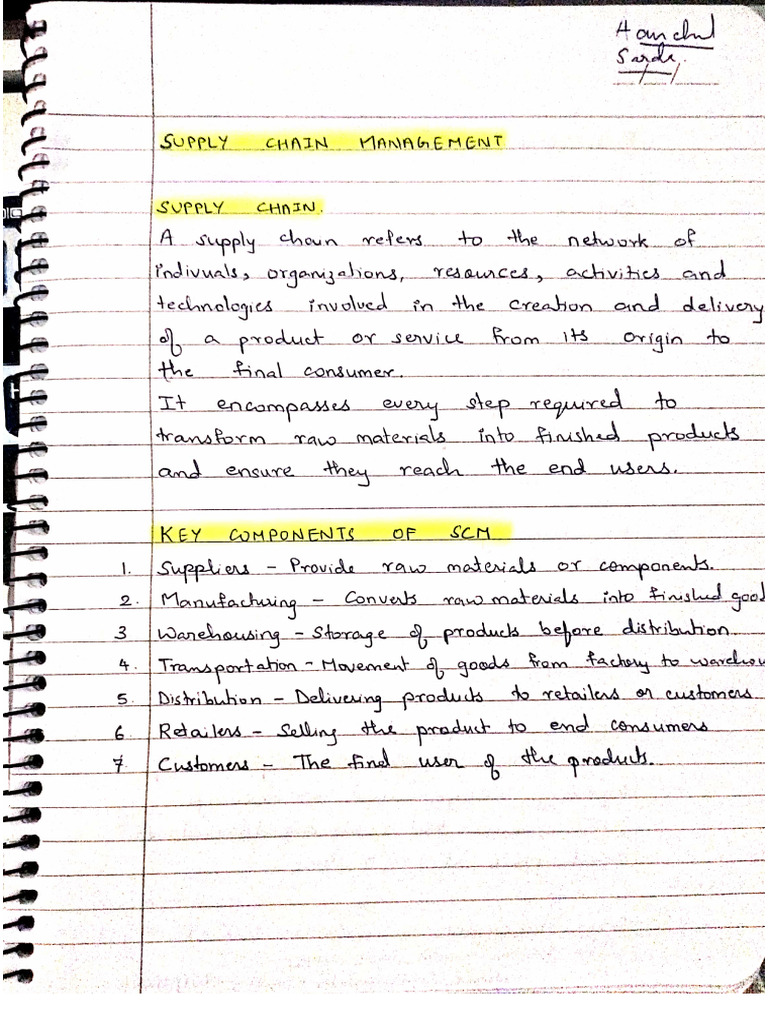 Sarda
SUPPLY CHAIN MANAGEMENT
SUPPLY CHAIN.
A supply chain refers to the network of
indivuals, organizations, resources, activities and
technologies involved in the creation and delivery
of a product or service from its origin to
the final consumer.
It encompasses every step required to
transform raw materials into finished products
and ensure they reach the end users.
KEY COMPONENTS OF SCM
1. Suppliers - Provide raw materials or components.
2. Manufacturing - Converts raw materials into finished good
3 Warehousing - Storage of products before distribution
4. Transportation - Movement of goods from factory to warehou
5. Distribution - Delivering products to retailers or customers
6 Retailers - Selling the product to end consumers
7 Customers - The final user of the products.